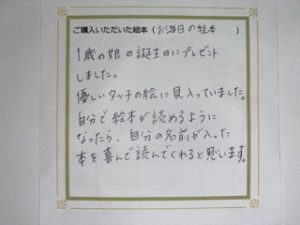 ご購入いただいた絵本(お誕生日の絵本)
1歳の娘の誕生日にプレゼント
しました。
優しいタッチの絵に見入っていました。
自分で絵本が読めるように
なったら、自分の名前が入った
本を喜んで読んでくれると思います。